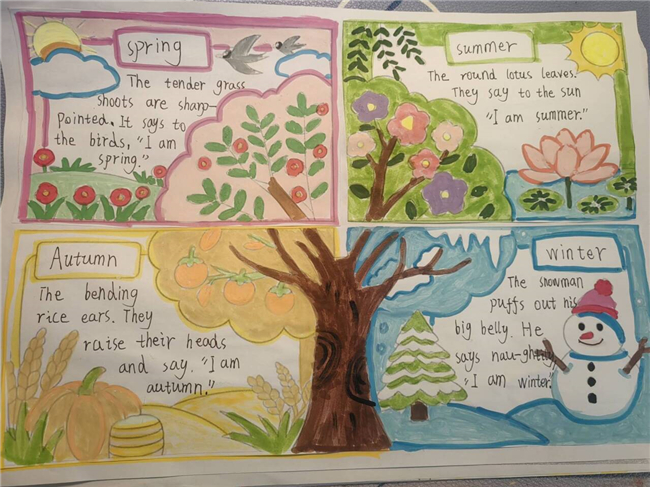 spring
The tender grass
shoots are sharp-
pointed. It says to
the birds, "I am
spring."
summer
The round lotus leaves.
They say to the sun
"I am summer."
Autumn
The bending
rice ears. They
raise their heads
and say. "I am
autumn."
winter
The snowman
puffs out his
big belly. He
says nau-ghtily
"I am winter."